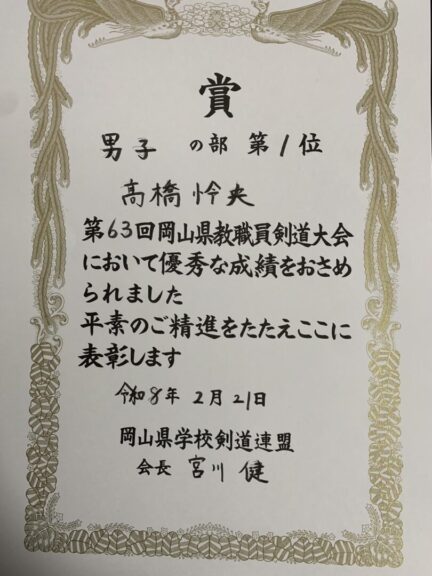 賞
男子 の部 第1位
高橋怜央
第63回岡山県教職員剣道大会
において優秀な成績をおさめ
られました
平素のご精進をたたえここに
表彰します
令和8年 2月 21日
岡山県学校剣道連盟
会長 宮川 健